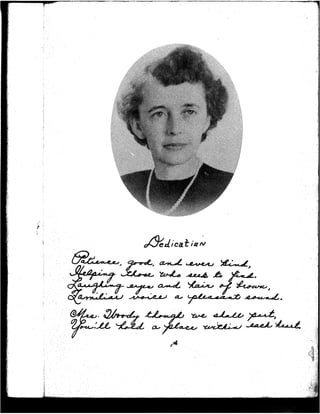 Dedication
Patience, good, and ever kind,
Helping those who seek to find.
Laughing eyes and hair of brown,
Familiar voice a pleasant sound.
Mrs. Woody though we shall part,
You'll hold a place within each heart.